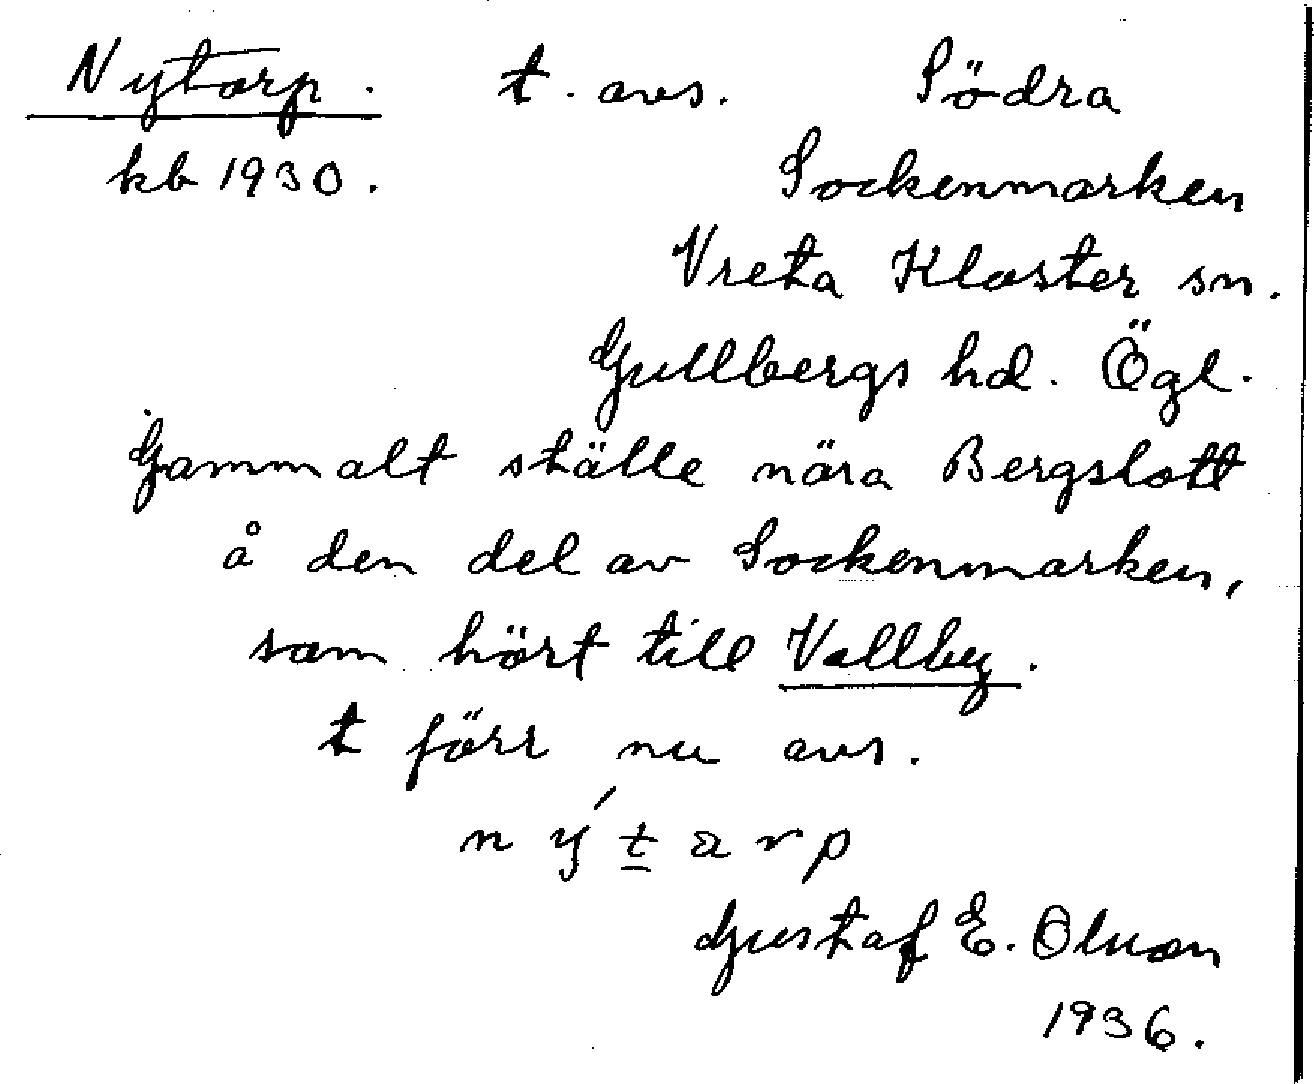 Nytorp. t. avs. Södra
kb 1930. Sockenmarken
Vreta Kloster sn.
Gullbergs hd. Ögl.
Gammalt ställe nära Bergslott
å den del av Sockenmarken,
som hört till Vallby.
t förr nu avs.
n ý t a r p
Gustaf E. Olsson
1936.